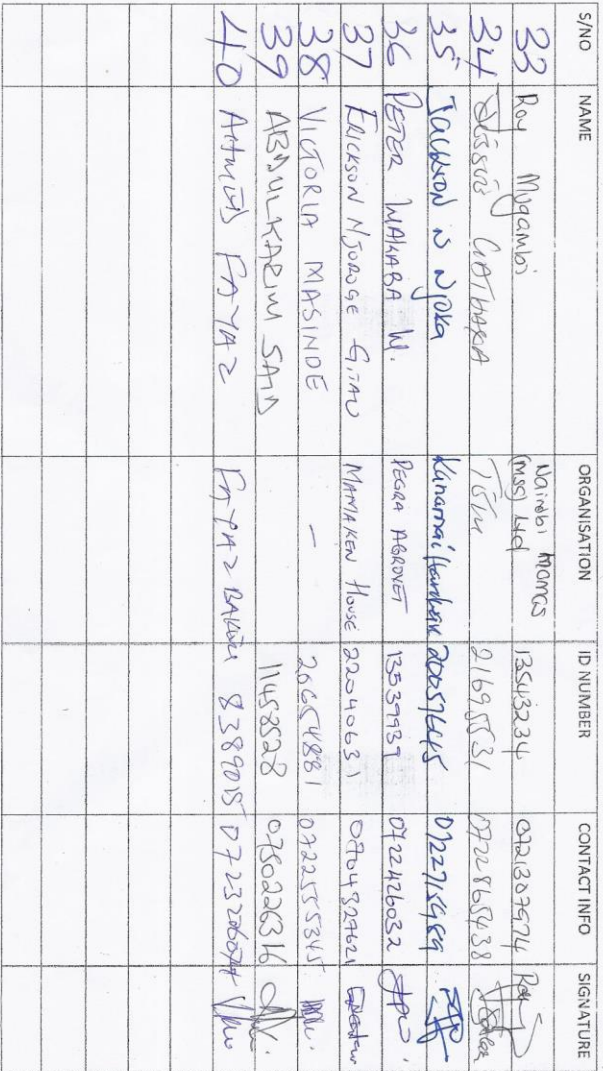 S/NO NAME ORGANISATION ID NUMBER CONTACT INFO SIGNATURE
33 Roy Mugambi Nairobi Mamas (MSS) Ltd 13543234 0721307974
34 GATHARA 21695531 0722865438
35 Jackson N Njoka Kanamai Hardware 20057645 0722715989
36 PETER WAKABA W. PEGRA AGROVET 13539939 0722426032
37 ERICKSON NJOROGE GITAU MAMAKEN HOUSE 22040631 0704329621
38 VICTORIA MASINDE — 26654881 0722555345
39 ABDULKARIM SAID 11458528 0750226316
40 AHMED FAYAZ FAYAZ BAKERS 8389015